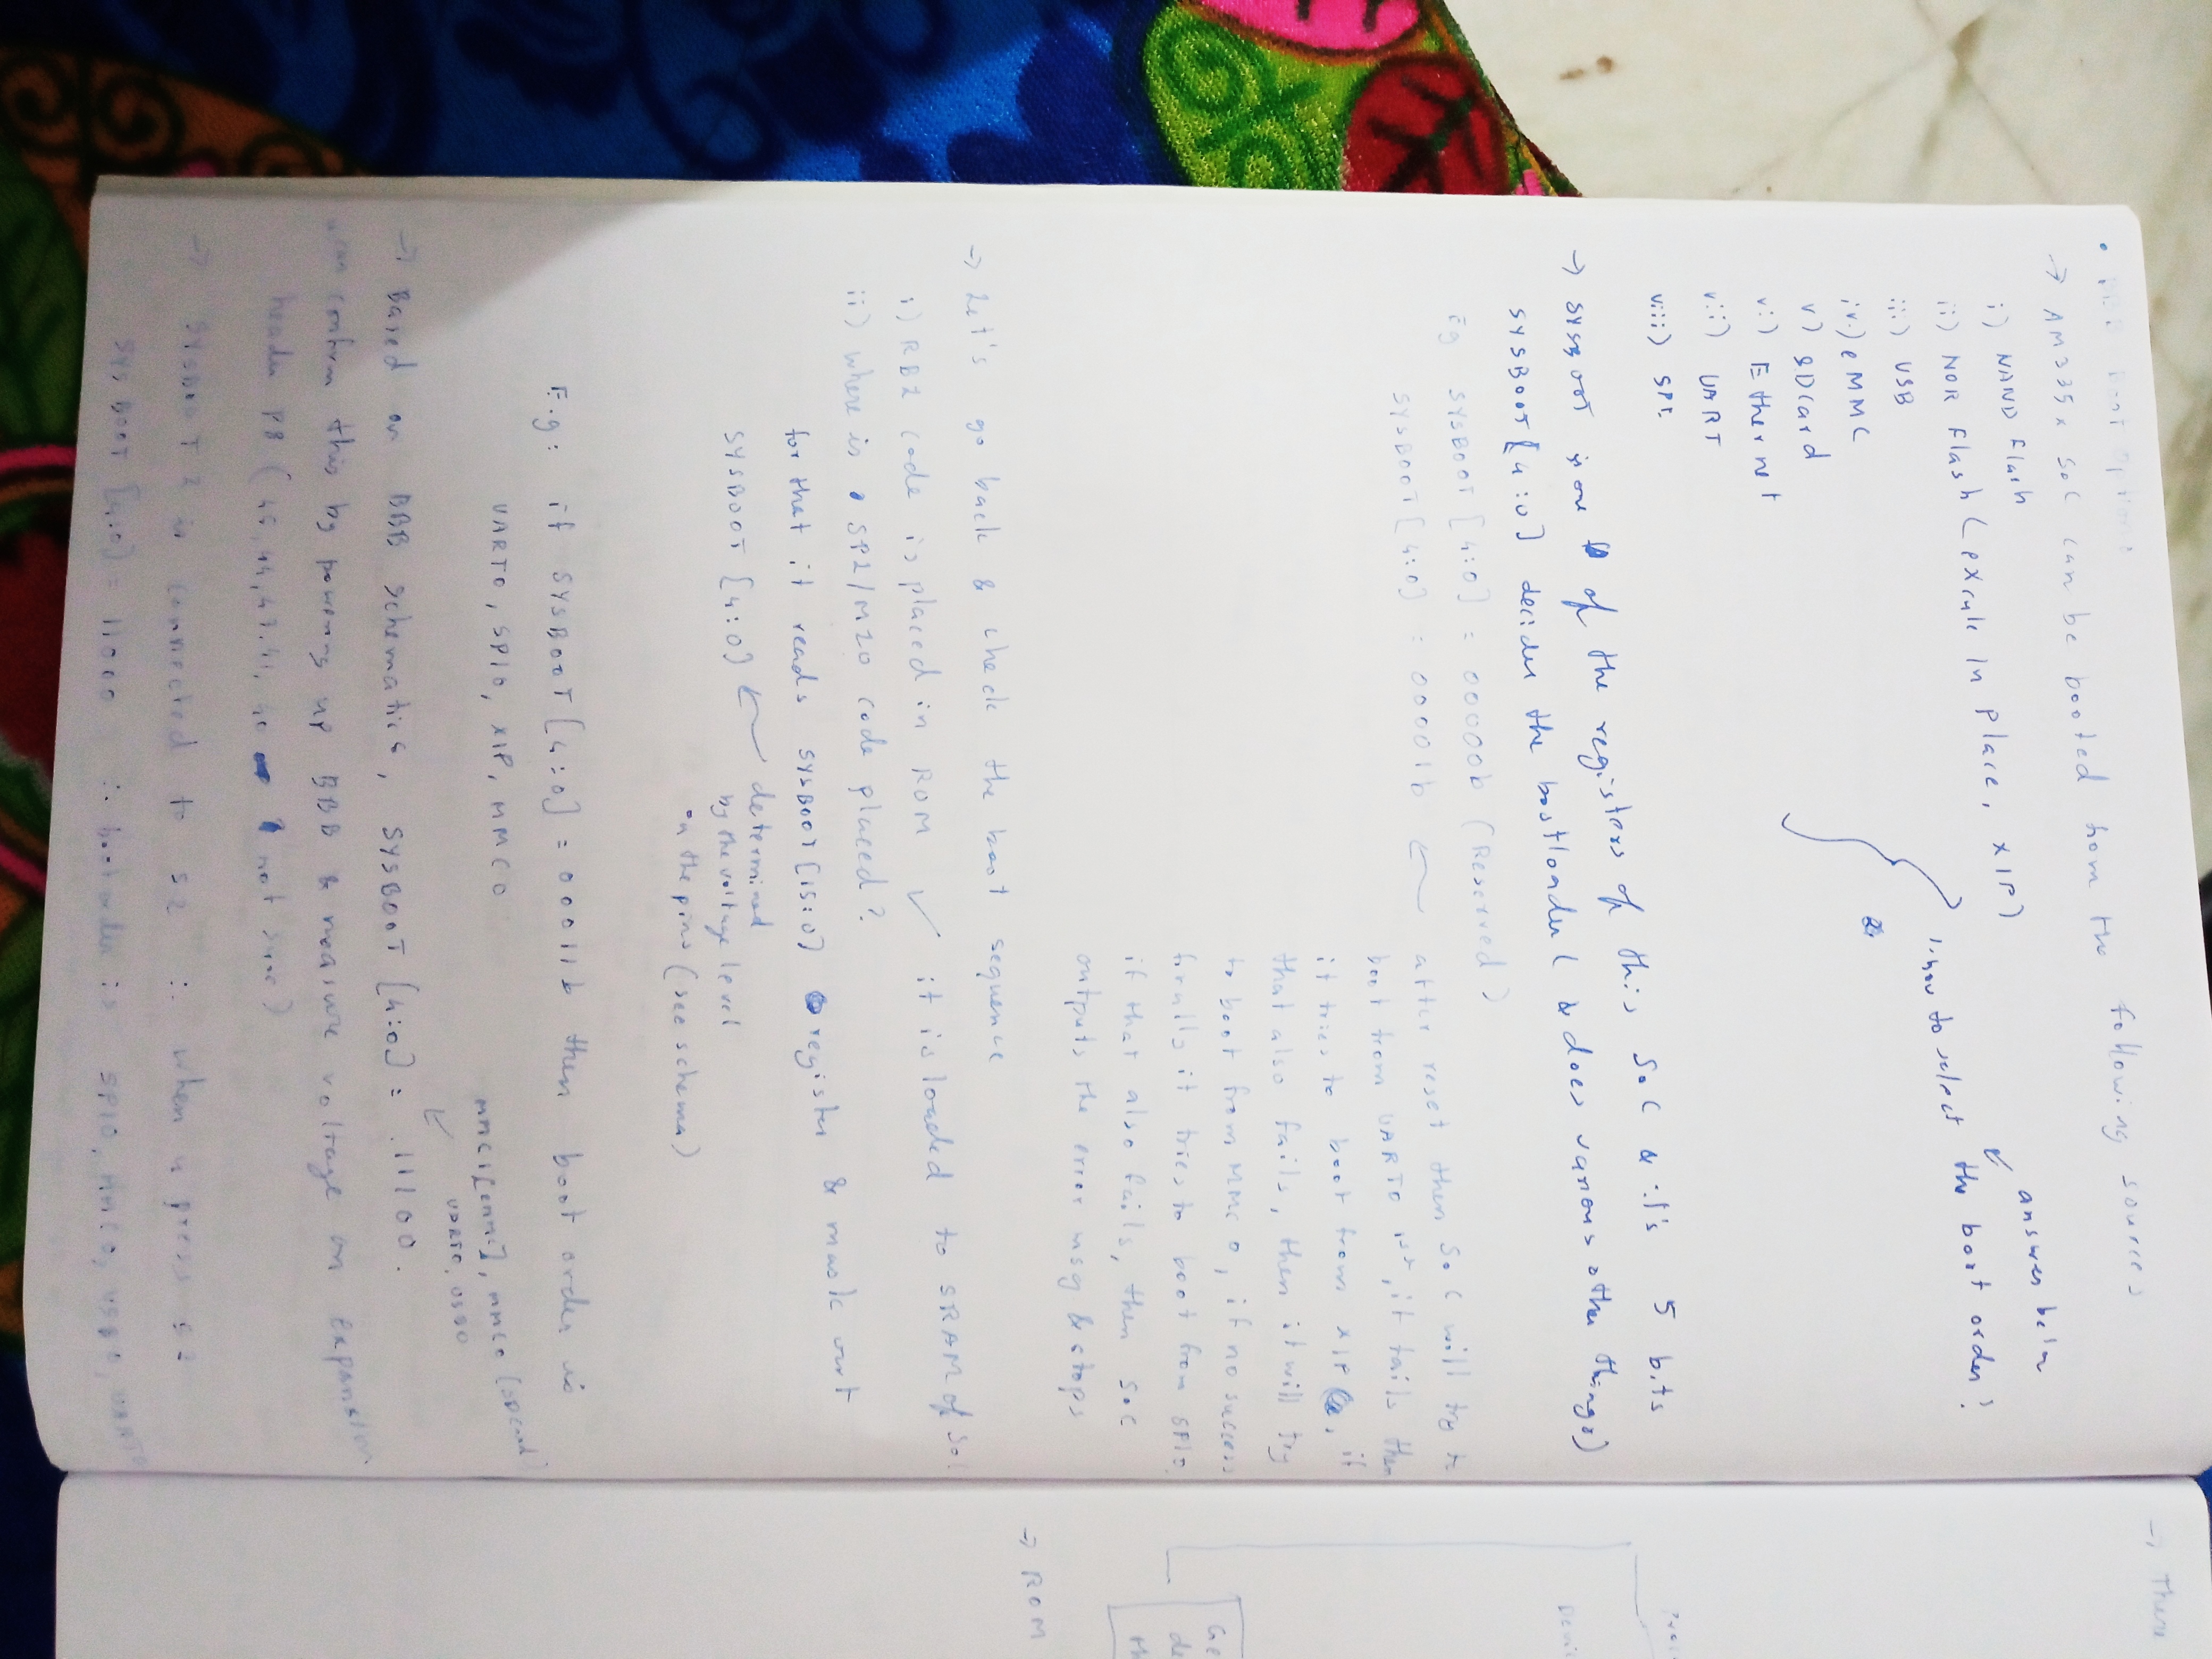 • BBB boot options
-> AM335x SoC can be booted from the following sources
i) NAND flash
ii) NOR flash (execute In place, XIP)
iii) USB
iv) eMMC
v) SDcard
vi) Ethernet
vii) UART
viii) SPI
answer below
how to select the boot order?
-> SYSBOOT is one of the registers of this SoC & it's 5 bits
SYSBOOT[4:0] decides the bootloader (& does various other things)
Eg SYSBOOT[4:0] = 00000b (Reserved)
SYSBOOT[4:0] = 00001b
after reset then SoC will try to
boot from UART0 1st, it fails then
it tries to boot from XIP, if
that also fails, then it will try
to boot from MMC0, if no success
finally it tries to boot from SPI0,
if that also fails, then SoC
outputs the error msg & stops
-> Let's go back & check the boot sequence
i) RBL code is placed in ROM it is loaded to SRAM of SoC
ii) where is SPL/MLO code placed?
for that it reads SYSBOOT[15:0] register & mask out
SYSBOOT[4:0]
determined
by the voltage level
on the pins (see schema)
E.g: if SYSBOOT[4:0] = 00011b then boot order is
UART0, SPI0, XIP, MMC0
MMC1[emmc], MMC0 (SDcard)
UART0, USB0
-> Based on BBB schematics, SYSBOOT[4:0] = 11100.
u can confirm this by powering up BBB & measure voltage on expansion
header P8 (45,44,43,41,40 not sure)
-> SYSBOOT 2 is connected to S2 ∴ when u press S2
SYSBOOT[4:0] = 11000 ∴ bootorder is SPI0, MMC0, USB0, UART0
-> There
-> ROM